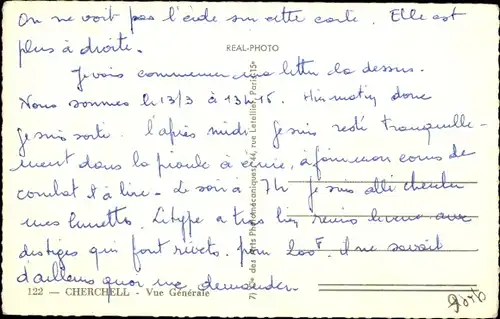 On ne voit pas l'école sur cette carte. Elle est
plus à droite.
REAL-PHOTO
Je vais commencer ma lettre là dessus.
Nous sommes le 13/3 à 13H15. Hier matin donc
je suis sorti. l'après midi je suis resté tranquille-
ment dans la piaule à écrire, à faire mon cours de
combat et à lire - Le soir à 7h je suis allé chercher
mes lunettes. Le type a très bien remis
qui sont rivets. pour 200F. il ne savait
d'ailleurs quoi me demander.
122 — CHERCHELL - Vue Générale
des Arts Photomécaniques, 44, rue Letellier, Paris-15e